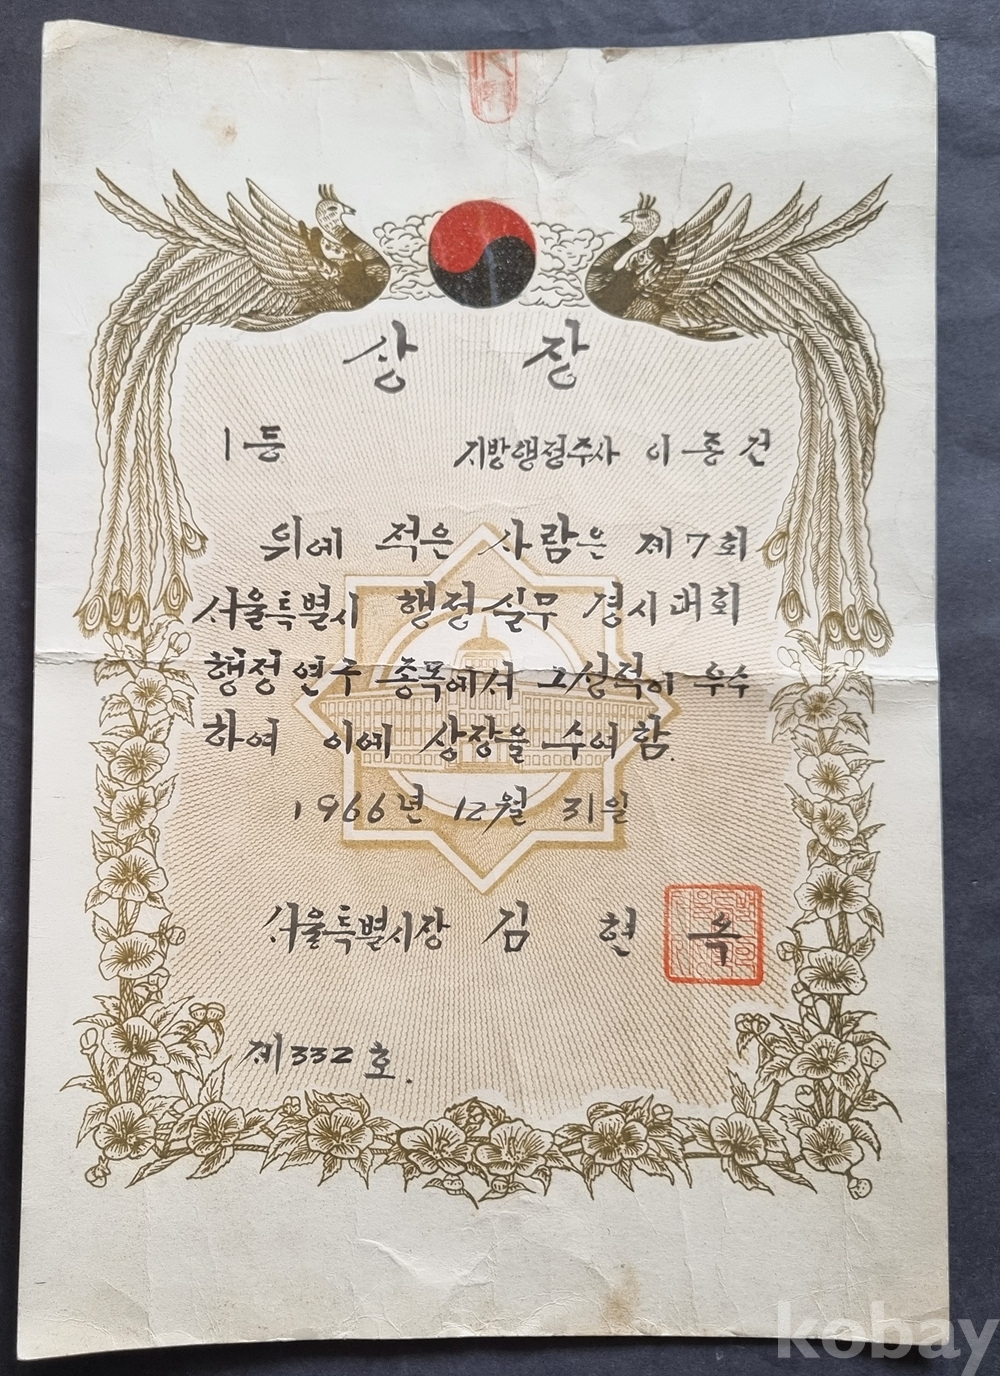 상 장
1등 지방행정주사 이종건
위에 적은 사람은 제7회
서울특별시 행정실무 경시대회
행정연구 종목에서 그 성적이 우수
하여 이에 상장을 수여함.
1966년 12월 31일
서울특별시장 김 현 옥
제332호.
kobay